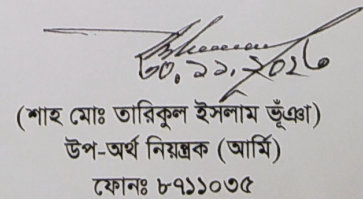 ৩০.১১.২০১৬
(শাহ মোঃ তারিকুল ইসলাম ভূঁঞা)
উপ-অর্থ নিয়ন্ত্রক (আর্মি)
ফোনঃ ৮৭১১০৩৫